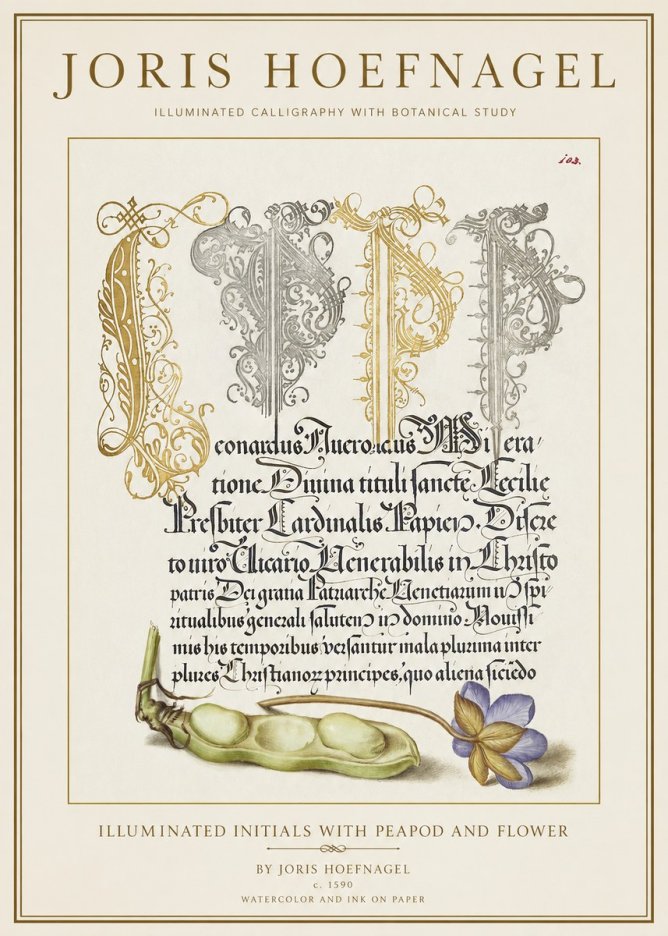 JORIS HOEFNAGEL
ILLUMINATED CALLIGRAPHY WITH BOTANICAL STUDY
103.
L P P P
eonardus
tione Diuina tituli sancte Cecilie
Presbiter Cardinalis Papien. Discre
to uiro Vicario Venerabilis in Christo
patris Dei gratia Patriarche Venetiarum in Spi
ritualibus generali salutem in domino Nouissi
mis his temporibus versantur mala plurima inter
plures Christianoz principes, quo aliena
ILLUMINATED INITIALS WITH PEAPOD AND FLOWER
BY JORIS HOEFNAGEL
c. 1590
WATERCOLOR AND INK ON PAPER